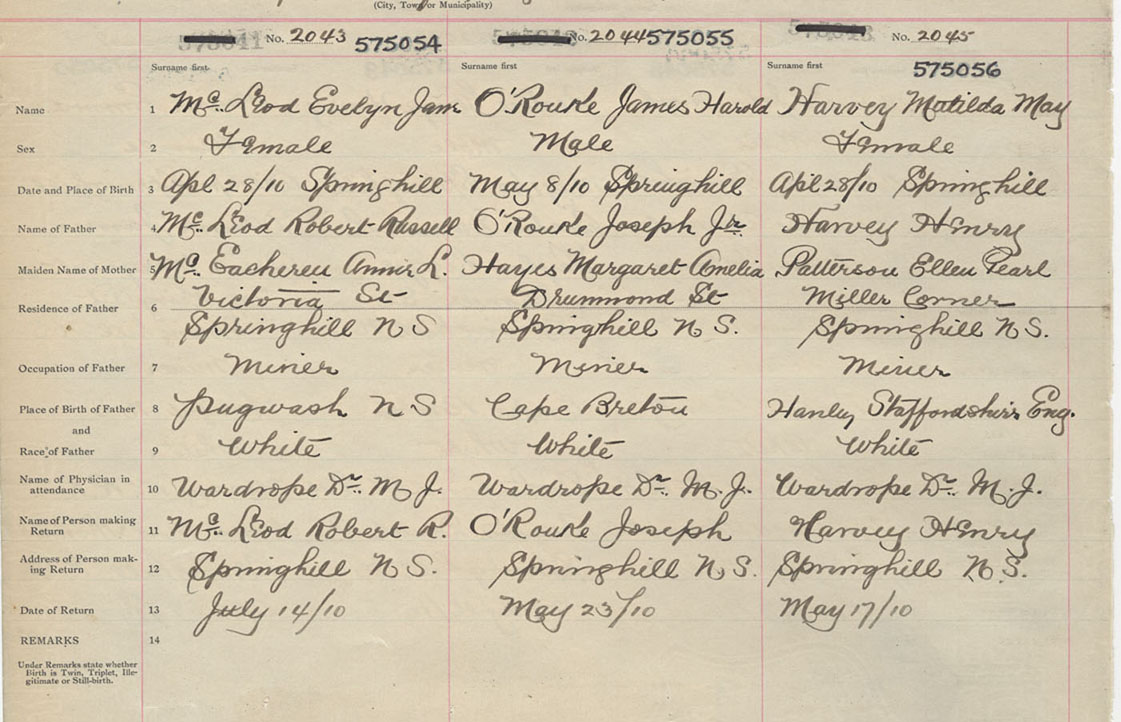 (City, Town or Municipality)
No. 2043 575054 No. 2044 575055 No. 2045
575056
Surname first Surname first Surname first
Name 1 Mc. Leod Evelyn Jane O'Rourke James Harold Harvey Matilda May
Sex 2 Female Male Female
Date and Place of Birth 3 Apl 28/10 Springhill May 8/10 Springhill Apl 28/10 Springhill
Name of Father 4 Mc. Leod Robert Russell O'Rourke Joseph Jr. Harvey Henry
Maiden Name of Mother 5 Mc. Eacheren Annie L. Hayes Margaret Amelia Patterson Ellen Pearl
Victoria St Drummond St Miller Corner
Residence of Father 6
Springhill N S Springhill N S. Springhill N S.
Occupation of Father 7 Miner Miner Miner
Place of Birth of Father 8 Pugwash N S Cape Breton Hanley Staffordshire Eng.
and
Race of Father 9 White White White
Name of Physician in
attendance 10 Wardrope Dr. M. J. Wardrope Dr. M. J. Wardrope Dr. M. J.
Name of Person making
Return 11 Mc. Leod Robert R. O'Rourke Joseph Harvey Henry
Address of Person mak-
ing Return 12 Springhill N S. Springhill N. S. Springhill N. S.
Date of Return 13 July 14/10 May 23/10 May 17/10
REMARKS 14
Under Remarks state whether
Birth is Twin, Triplet, Ille-
gitimate or Still-birth.